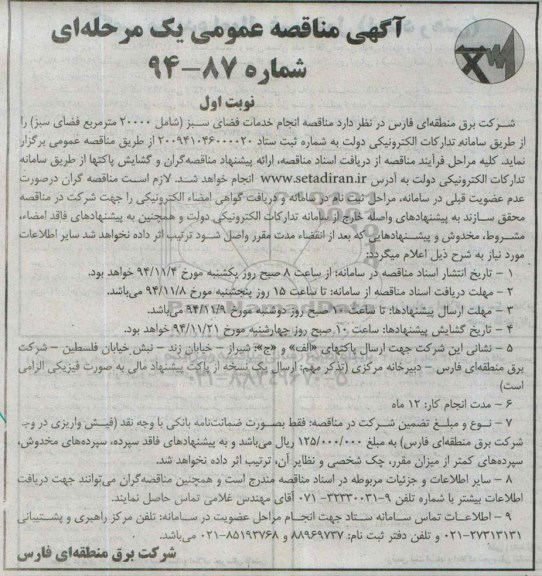 آگهی مناقصه عمومی یک مرحله‌ای
شماره ۸۷-۹۴
نوبت اول
شرکت برق منطقه‌ای فارس در نظر دارد مناقصه انجام خدمات فضای سبز (شامل ۲۰۰۰۰ مترمربع فضای سبز) را
از طریق سامانه تدارکات الکترونیکی دولت به شماره ثبت ستاد ۲۰۰۹۴۱۰۴۶۰۰۰۰۲۰ از طریق مناقصه عمومی برگزار
نماید. کلیه مراحل فرآیند مناقصه از دریافت اسناد مناقصه، ارائه پیشنهاد مناقصه‌گران و گشایش پاکتها از طریق سامانه
تدارکات الکترونیکی دولت به آدرس www.setadiran.ir انجام خواهد شد. لازم است مناقصه گران درصورت
عدم عضویت قبلی در سامانه، مراحل ثبت نام در سامانه و دریافت گواهی امضاء الکترونیکی را جهت شرکت در مناقصه
محقق سازند به پیشنهادهای واصله خارج از سامانه تدارکات الکترونیکی دولت و همچنین به پیشنهادهای فاقد امضاء،
مشروط، مخدوش و پیشنهادهایی که بعد از انقضاء مدت مقرر واصل شود ترتیب اثر داده نخواهد شد سایر اطلاعات
مورد نیاز به شرح ذیل اعلام میگردد:
۱ - تاریخ انتشار اسناد مناقصه در سامانه: از ساعت ۸ صبح روز یکشنبه مورخ ۹۴/۱۱/۴ خواهد بود.
۲ - مهلت دریافت اسناد مناقصه از سامانه: تا ساعت ۱۵ روز پنجشنبه مورخ ۹۴/۱۱/۸ می‌باشد.
۳ - مهلت ارسال پیشنهادها: تا ساعت ۱۰ صبح روز دوشنبه مورخ ۹۴/۱۱/۹ می‌باشد.
۴ - تاریخ گشایش پیشنهادها: ساعت ۱۰ صبح روز چهارشنبه مورخ ۹۴/۱۱/۲۱ خواهد بود.
۵ - نشانی این شرکت جهت ارسال پاکتهای «الف» و «ج»: شیراز - خیابان زند - نبش خیابان فلسطین - شرکت
برق منطقه‌ای فارس - دبیرخانه مرکزی (تذکر مهم: ارسال یک نسخه از پاکت پیشنهاد مالی به صورت فیزیکی الزامی
است)
۶ - مدت انجام کار: ۱۲ ماه
۷ - نوع و مبلغ تضمین شرکت در مناقصه: فقط بصورت ضمانت‌نامه بانکی یا وجه نقد (فیش واریزی در وجه
شرکت برق منطقه‌ای فارس) به مبلغ ۱۲۵/۰۰۰/۰۰۰ ریال می‌باشد و به پیشنهادهای فاقد سپرده، سپرده‌های مخدوش،
سپرده‌های کمتر از میزان مقرر، چک شخصی و نظایر آن، ترتیب اثر داده نخواهد شد.
۸ - سایر اطلاعات و جزئیات مربوطه در اسناد مناقصه مندرج است و همچنین مناقصه‌گران می‌توانند جهت دریافت
اطلاعات بیشتر با شماره تلفن ۹-۳۲۳۳۰۰۳۱-۰۷۱ آقای مهندس غلامی تماس حاصل نمایند.
۹ - اطلاعات تماس سامانه ستاد جهت انجام مراحل عضویت در سامانه: تلفن مرکز راهبری و پشتیبانی
۰۲۱-۲۷۳۱۳۱۳۱ و تلفن دفتر ثبت نام: ۸۸۹۶۹۷۳۷ و ۸۵۱۹۳۷۶۸-۰۲۱ می‌باشد.
شرکت برق منطقه‌ای فارس